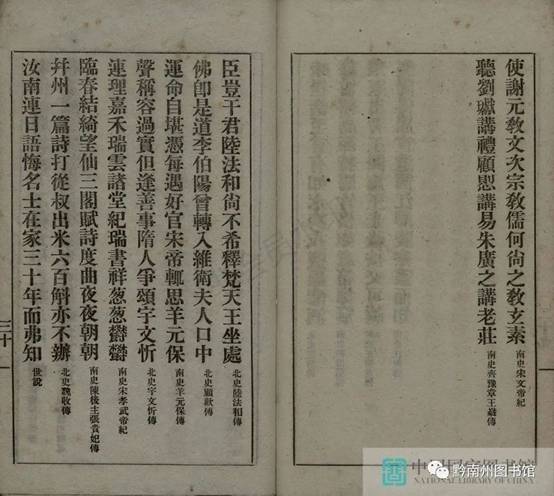 使謝元教文次宗教儒何尙之教玄素 南史宋文帝紀
聽劉瓛講禮顧愳講易朱廣之講老莊 南史齊豫章王嶷傳
臣豈干君陸法和尙不希釋梵天王坐處 北史陸法和傳
佛卽是道李伯陽曾轉入維衛夫人口中 北史顧歡傳
運命自堪憑每遇好官宋帝輒思羊元保 南史羊元保傳
聲稱容過實但逢善事隋人爭頌宇文忻 北史宇文忻傳
連理嘉禾瑞雲諸堂紀瑞書祥葱葱鬱鬱 南史宋孝武帝紀
臨春結綺望仙三閣賦詩度曲夜夜朝朝 南史陳後主張貴妃傳
幷州一篇詩打從叔出米六百斛亦不辦 北史魏收傳
汝南連日語悔名士在家三十年而弗知 世說
三十
中国国家图书馆
NATIONAL LIBRARY OF CHINA
黔南州图书馆